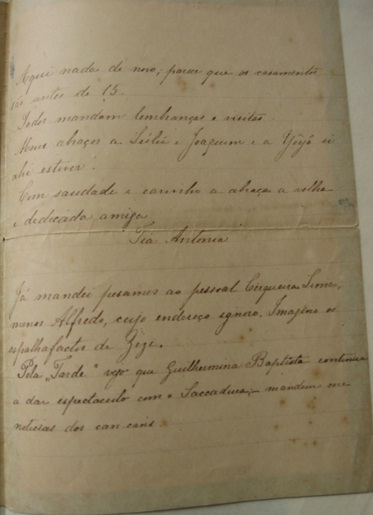 Aqui nada de novo; parece que os casamentos
são antes de 15.
Todos mandam lembranças e visitas.
Meus abraços a Lucilia e Joaquim e a Yôyô si
ahi estiver.
Com saudade e carinho a abraça a velha
e dedicada amiga
Tia Antonia
Já mandei pesames ao pessoal Cerqueira Lima,
menos Alfredo, cujo endereço ignoro. Imagino os
espalhafactos de Zezé.
Pela "Tarde" vejo que Guilhermina Baptista continúa
a dar espectaculo com o Saccadura; mandem me
noticias dos can cans